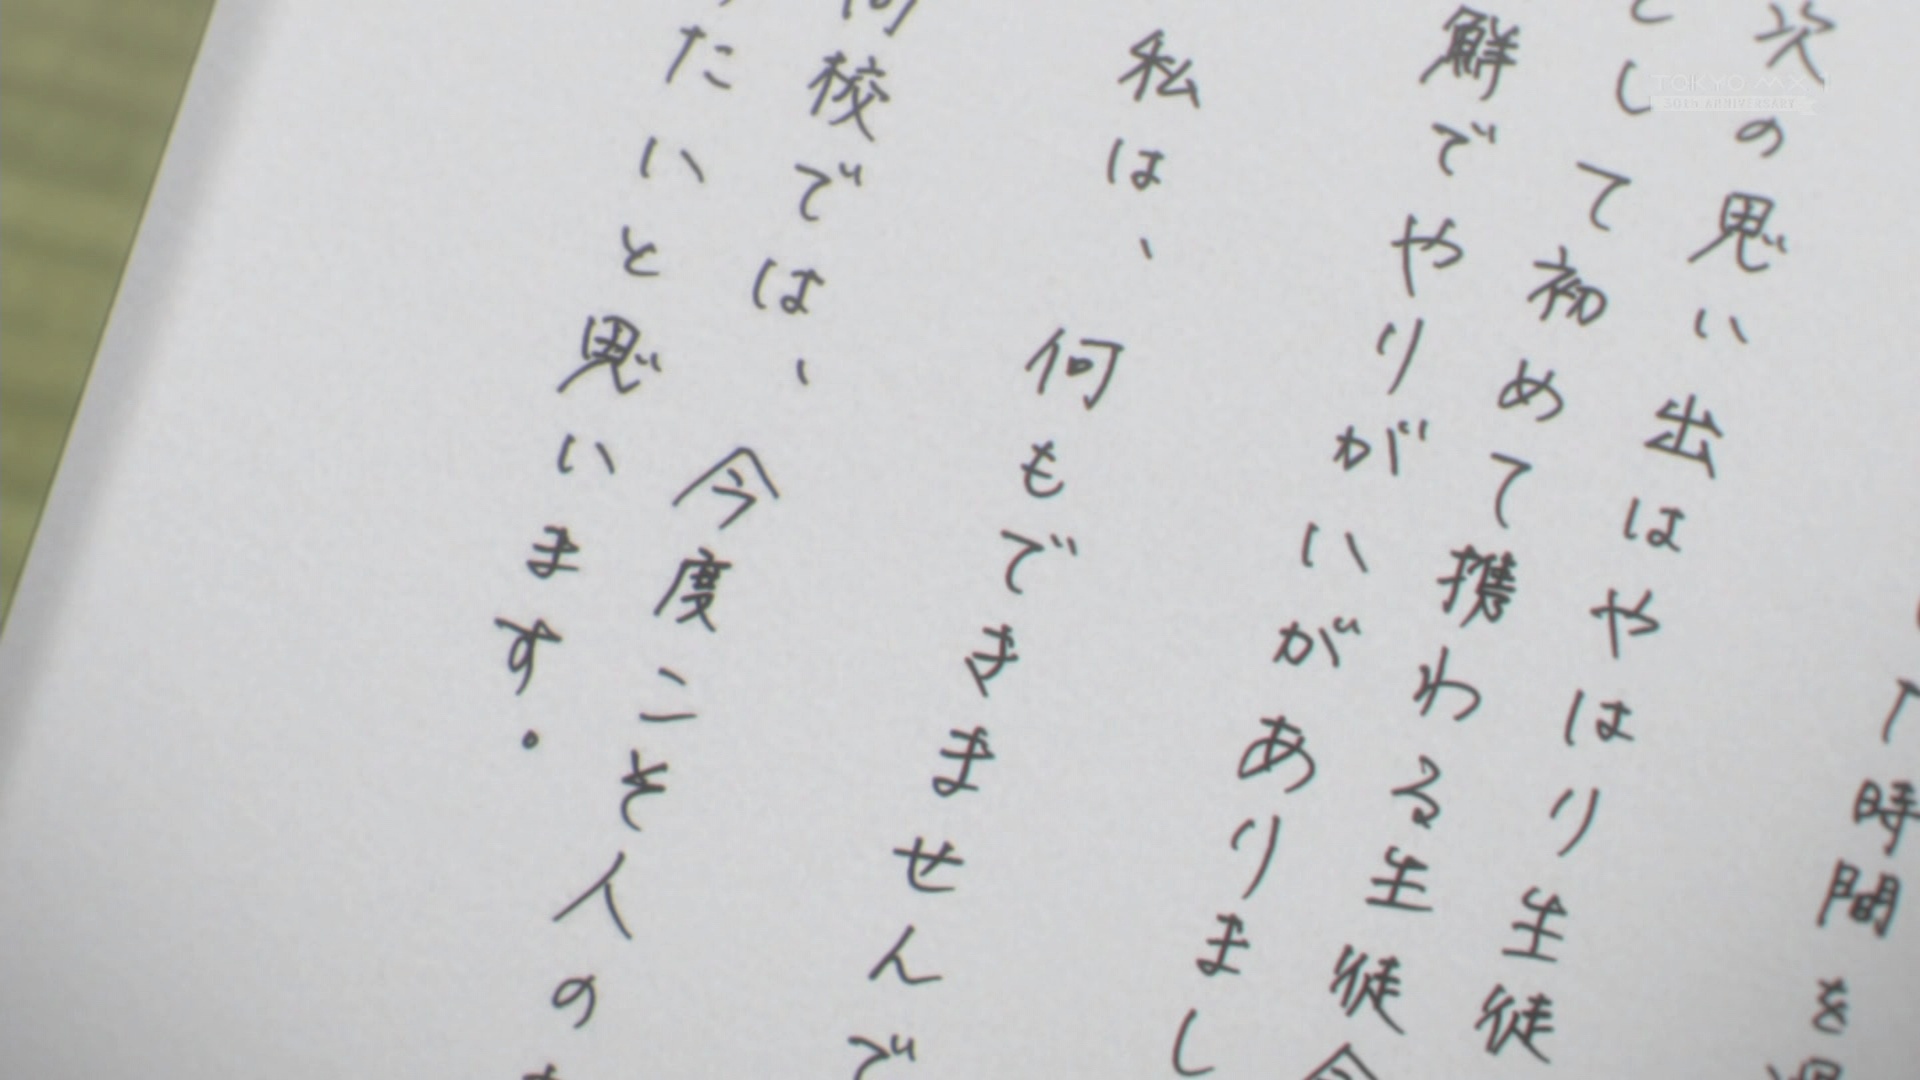 時間を
次の思い出はやはり生徒
として初めて携わる生徒会
鮮でやりがいがありまし
私は、何もできませんで
高校では、今度こそ人の
たいと思います.
TOKYO MX 1
20TH ANNIVERSARY